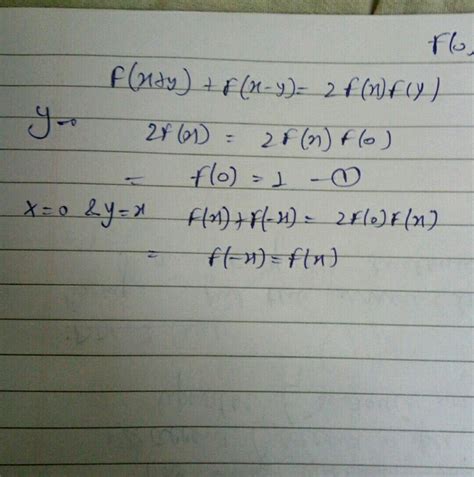 f(0,
f(x+y) + f(x-y) = 2f(x)f(y)
y=0 2f(x) = 2f(x)f(0)
= f(0) = 1 - ①
x=0 & y=x f(x)+f(-x) = 2f(0)f(x)
= f(-x) = f(x)